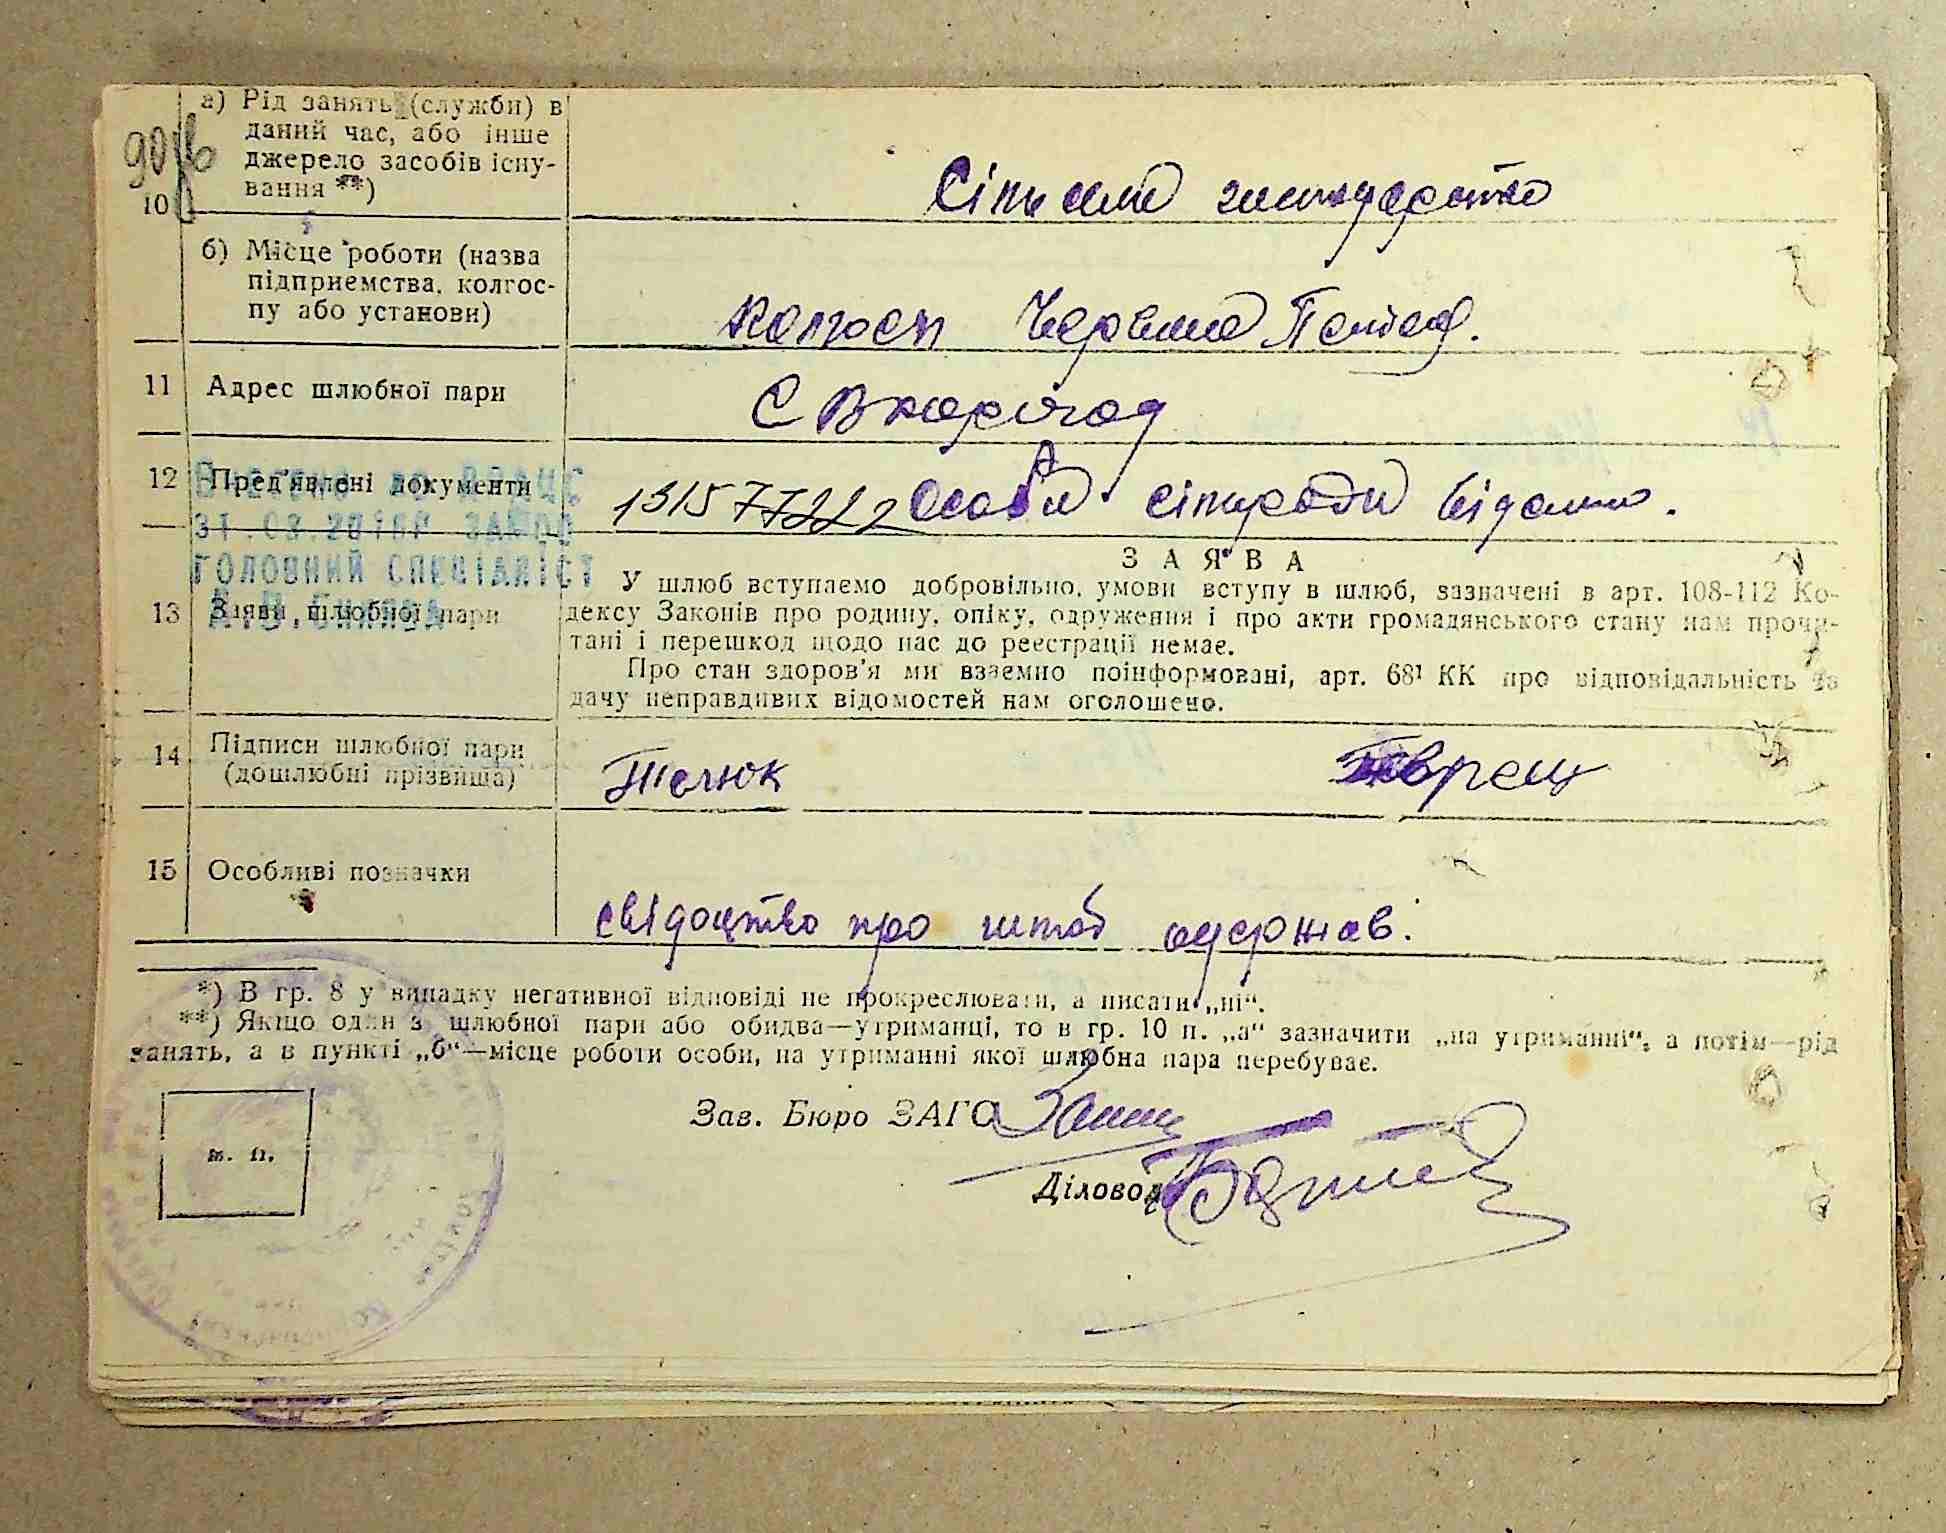 а) Рід занять (служби) в
даний час, або інше
джерело засобів існу-
вання **)
90
10
Сільське господарство
б) Місце роботи (назва
підприємства, колгос-
пу або установи)
колгосп Червоний
11 Адрес шлюбної пари
С
12 Пред'явлені документи
Внесено до
31.03. ЗАПОС
ГОЛОВНИЙ СПЕЦІАЛІСТ
Особи сільради відомо.
З А Я В А
13 Заяви шлюбної пари
У шлюб вступаємо добровільно, умови вступу в шлюб, зазначені в арт. 108-112 Ко-
дексу Законів про родину, опіку, одруження і про акти громадянського стану нам прочи-
тані і перешкод щодо нас до реєстрації немає.
Про стан здоров'я ми взаємно поінформовані, арт. 68¹ КК про відповідальність за
дачу неправдивих відомостей нам оголошено.
14 Підписи шлюбної пари
(дошлюбні прізвища)
15 Особливі позначки
свідоцтво про шлюб одержав.
*) В гр. 8 у випадку негативної відповіді не прокреслювати, а писати „ні“.
**) Якщо один з шлюбної пари або обидва—утриманці, то в гр. 10 п. „а“ зазначити „на утриманні“, а потім—рід
занять, а в пункті „б“—місце роботи особи, на утриманні якої шлюбна пара перебуває.
Зав. Бюро ЗАГС
м. п.
Діловод